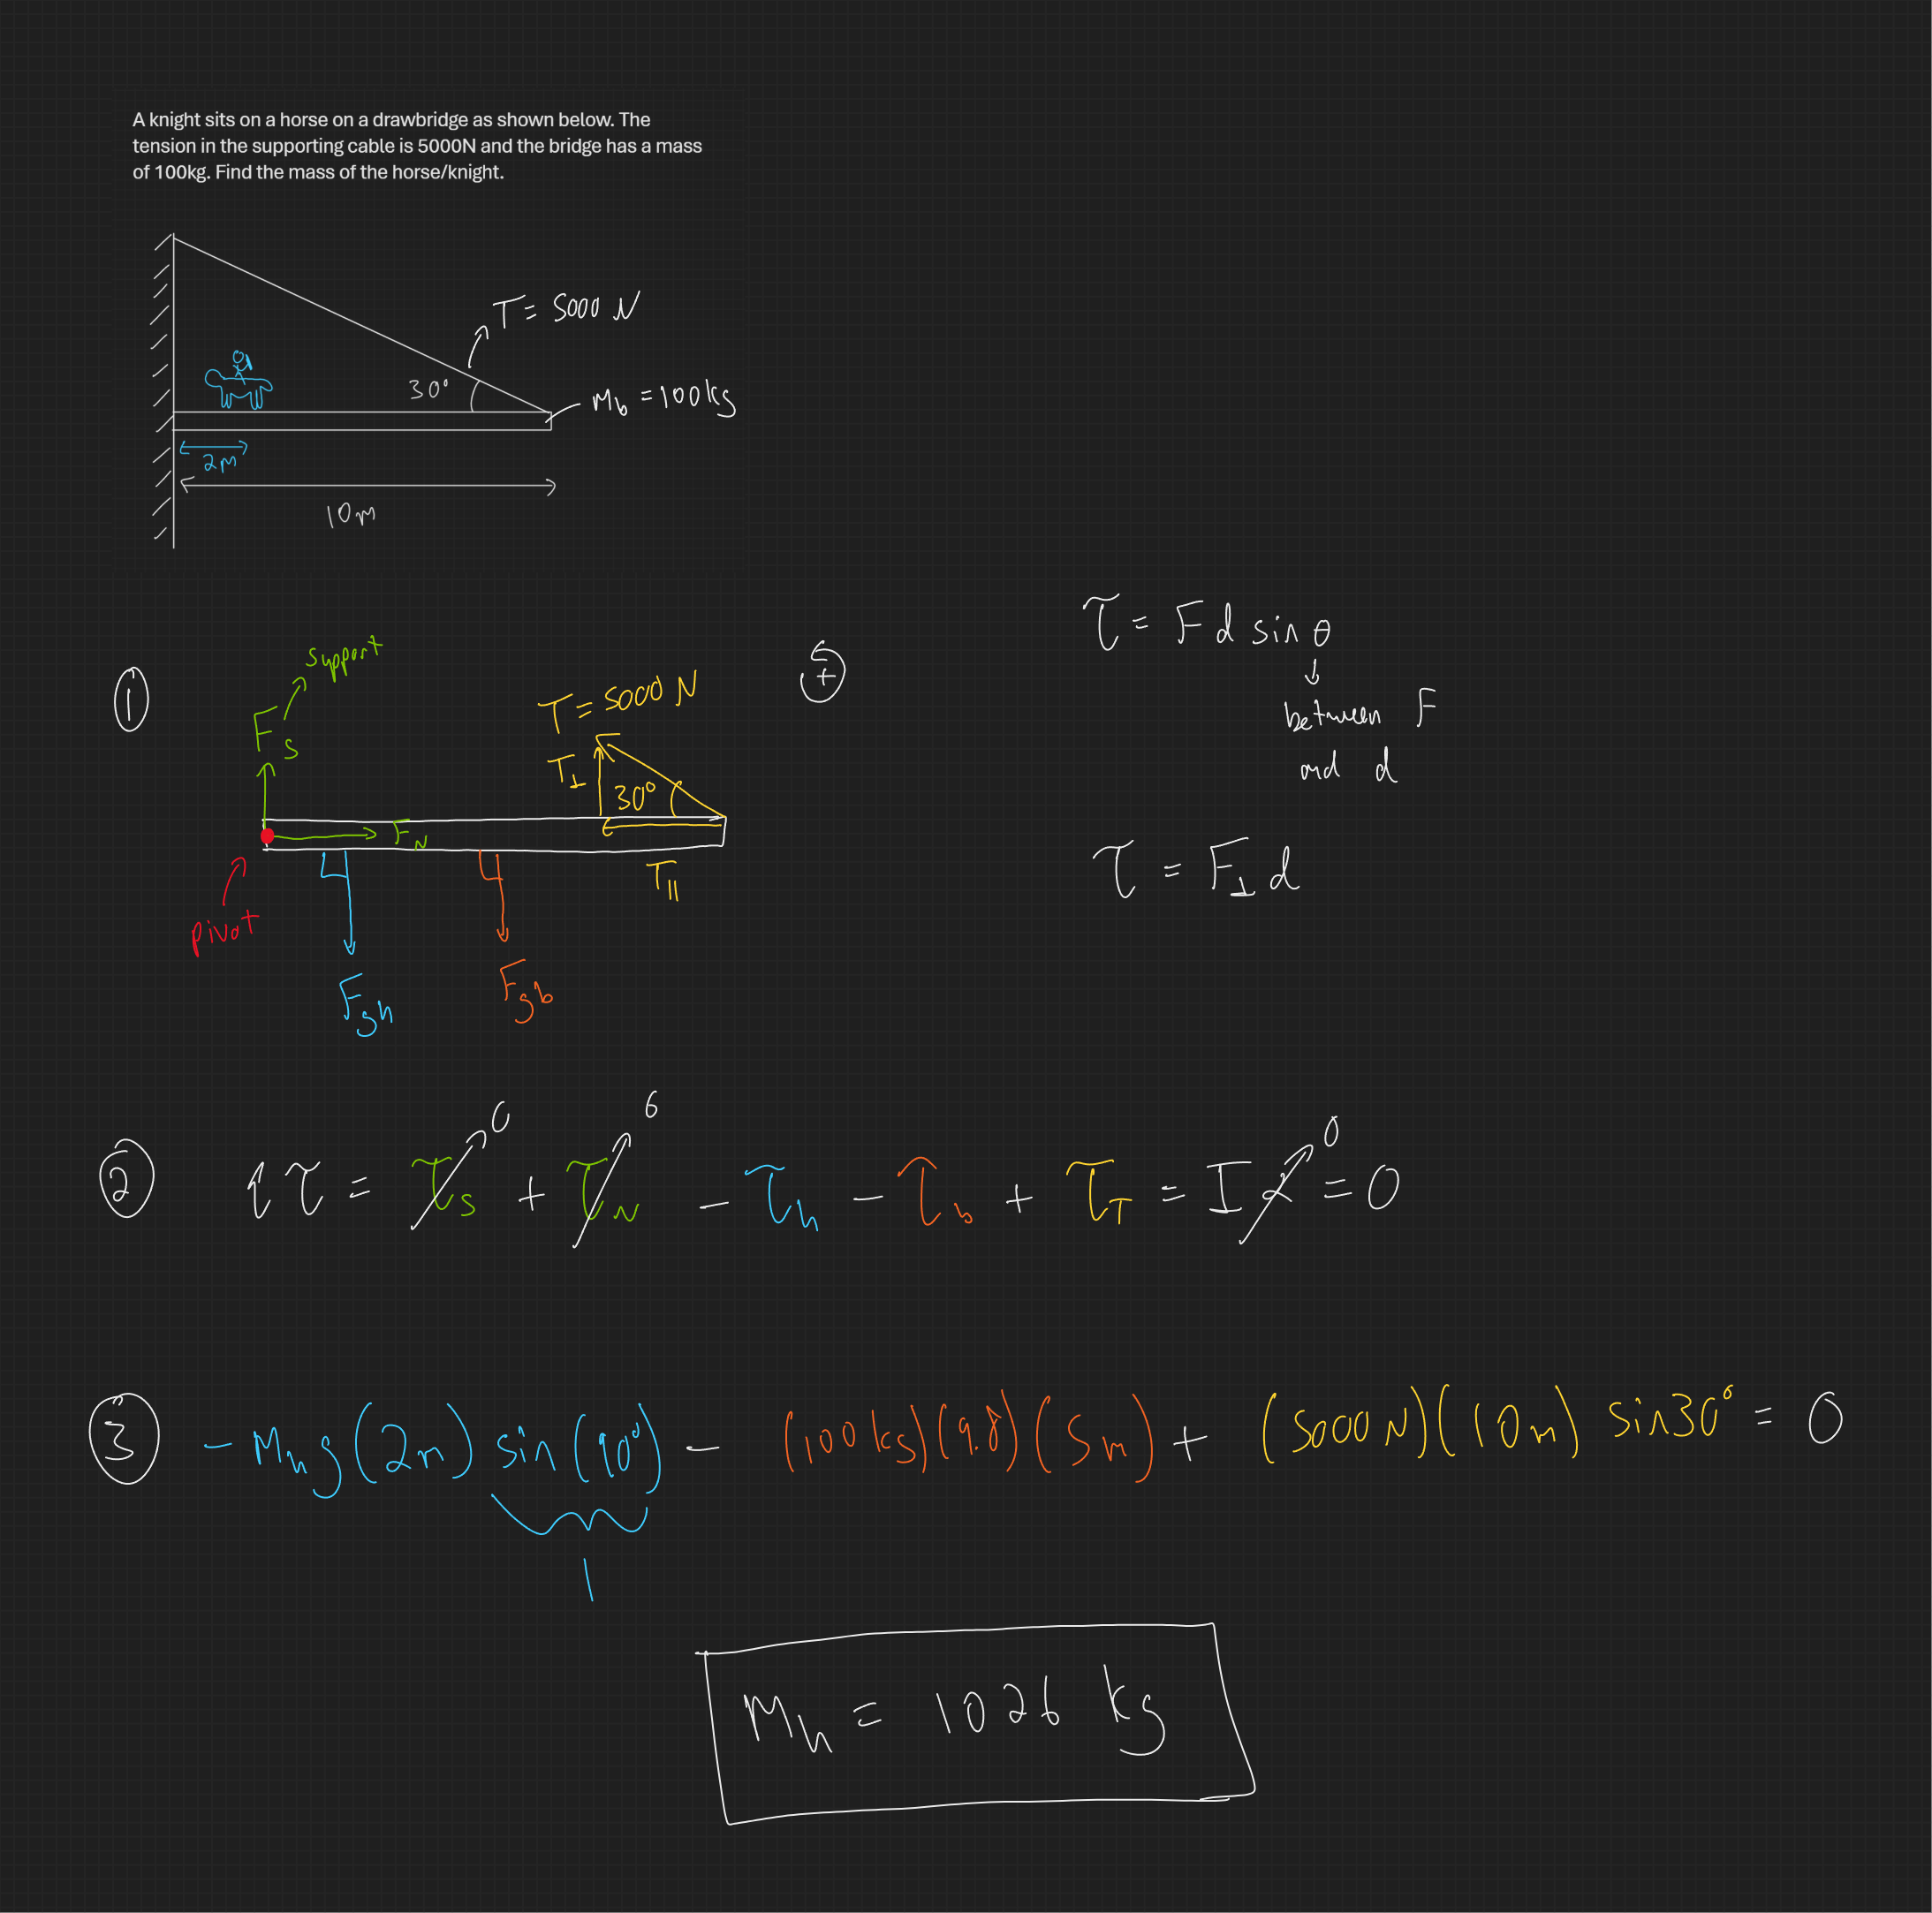 A knight sits on a horse on a drawbridge as shown below. The
tension in the supporting cable is 5000N and the bridge has a mass
of 100kg. Find the mass of the horse/knight.
T = 5000 N
30°
M_b = 100kg
2m
10m
τ = F d sin θ
↓
between F
and d
τ = F_⊥ d
①
support
F_s
T = 5000 N
+
T_⊥
30°
F_N
T_||
pivot
F_gh
F_gb
② Σ τ = τ_s 0 + τ_N 0 - τ_h - τ_b + τ_T = I α 0 = 0
③ - M_h g (2m) sin (90°) - (100 kg)(9.8)(5m) + (5000 N)(10m) sin30° = 0
1
M_h = 1026 kg